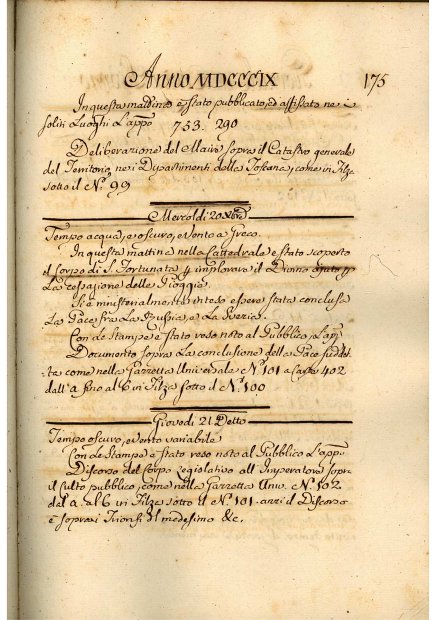 Anno MDCCCIX 175
In questa mattina è stato pubblicato, ed affissato ne i
soliti Luoghi L'appo 753. 290
Deliberazione del Mair sopra il Catasto generale
del Territorio, ne i Dipartimenti della Toscana, come in Filza
sotto il N.º 99
Mercoldì 20
Tempo acqua, e oscuro, e vento a Greco.
In questa mattina nella Cattedrale è stato scoperto
il Corpo di S. Fortunata p implorare il Divino ajuto p
La cessazione delle Pioggie.
Si è ministerialmente inteso essere stata conclusa
La Pace fra La Russia, e La Svezia.
Con de Stampe è stato reso noto al Pubblico, L'app.
Documento sopra La conclusione della Pace suddet=
ta come nella Gazzetta Universale N.º 101 a Carte 402
dall' a fino al 6 in Filza sotto il N.º 100
Giovedì 21 Detto
Tempo oscuro, e vento variabile
Con de Stampe è stato reso noto al Pubblico L'app.
Discorso del Corpo Legislativo all' Imperatore sopra
il Culto pubblico, come nella Gazzetta Univ. N.º 102
del a. al 6 in Filza sotto il N.º 101. anzi il Discorso
è sopra i Trionfi del medesimo &c.